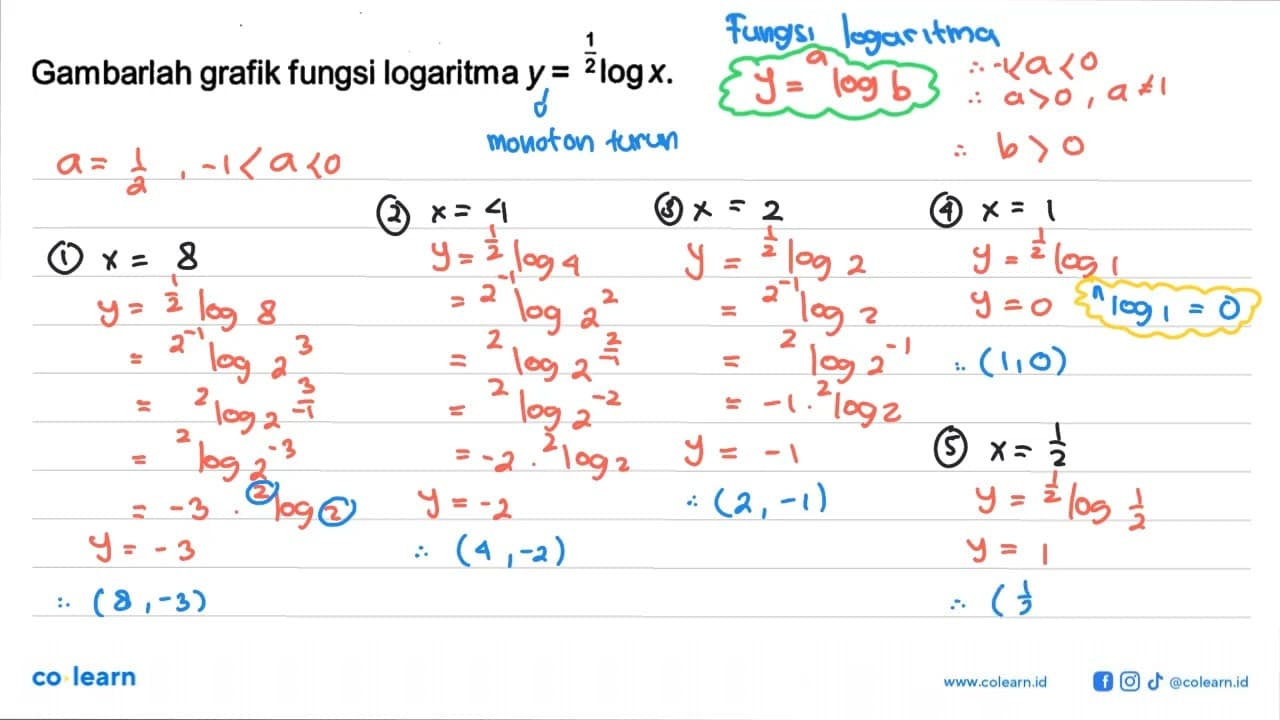 Gambarlah grafik fungsi logaritma y = ½log x.
monoton turun
Fungsi logaritma
y = ᵃlog b
∴ -1<a<0
∴ a>0, a≠1
∴ b>0
a = 1/2, -1<a<0
① x = 8
y = ^(1/2) log 8
= ^(2^-1) log 2^3
= ^2 log 2^(3/-1)
= ^2 log 2^-3
= -3 . ^2 log 2
y = -3
∴ (8, -3)
② x = 4
y = ^(1/2) log 4
= ^(2^-1) log 2^2
= ^2 log 2^(2/-1)
= ^2 log 2^-2
= -2 . ^2 log 2
y = -2
∴ (4, -2)
③ x = 2
y = ^(1/2) log 2
= ^(2^-1) log 2
= ^2 log 2^-1
= -1 . ^2 log 2
y = -1
∴ (2, -1)
④ x = 1
y = ^(1/2) log 1
y = 0
ⁿlog 1 = 0
∴ (1, 0)
⑤ x = 1/2
y = ^(1/2) log 1/2
y = 1
∴ (
co learn
www.colearn.id
@colearn.id